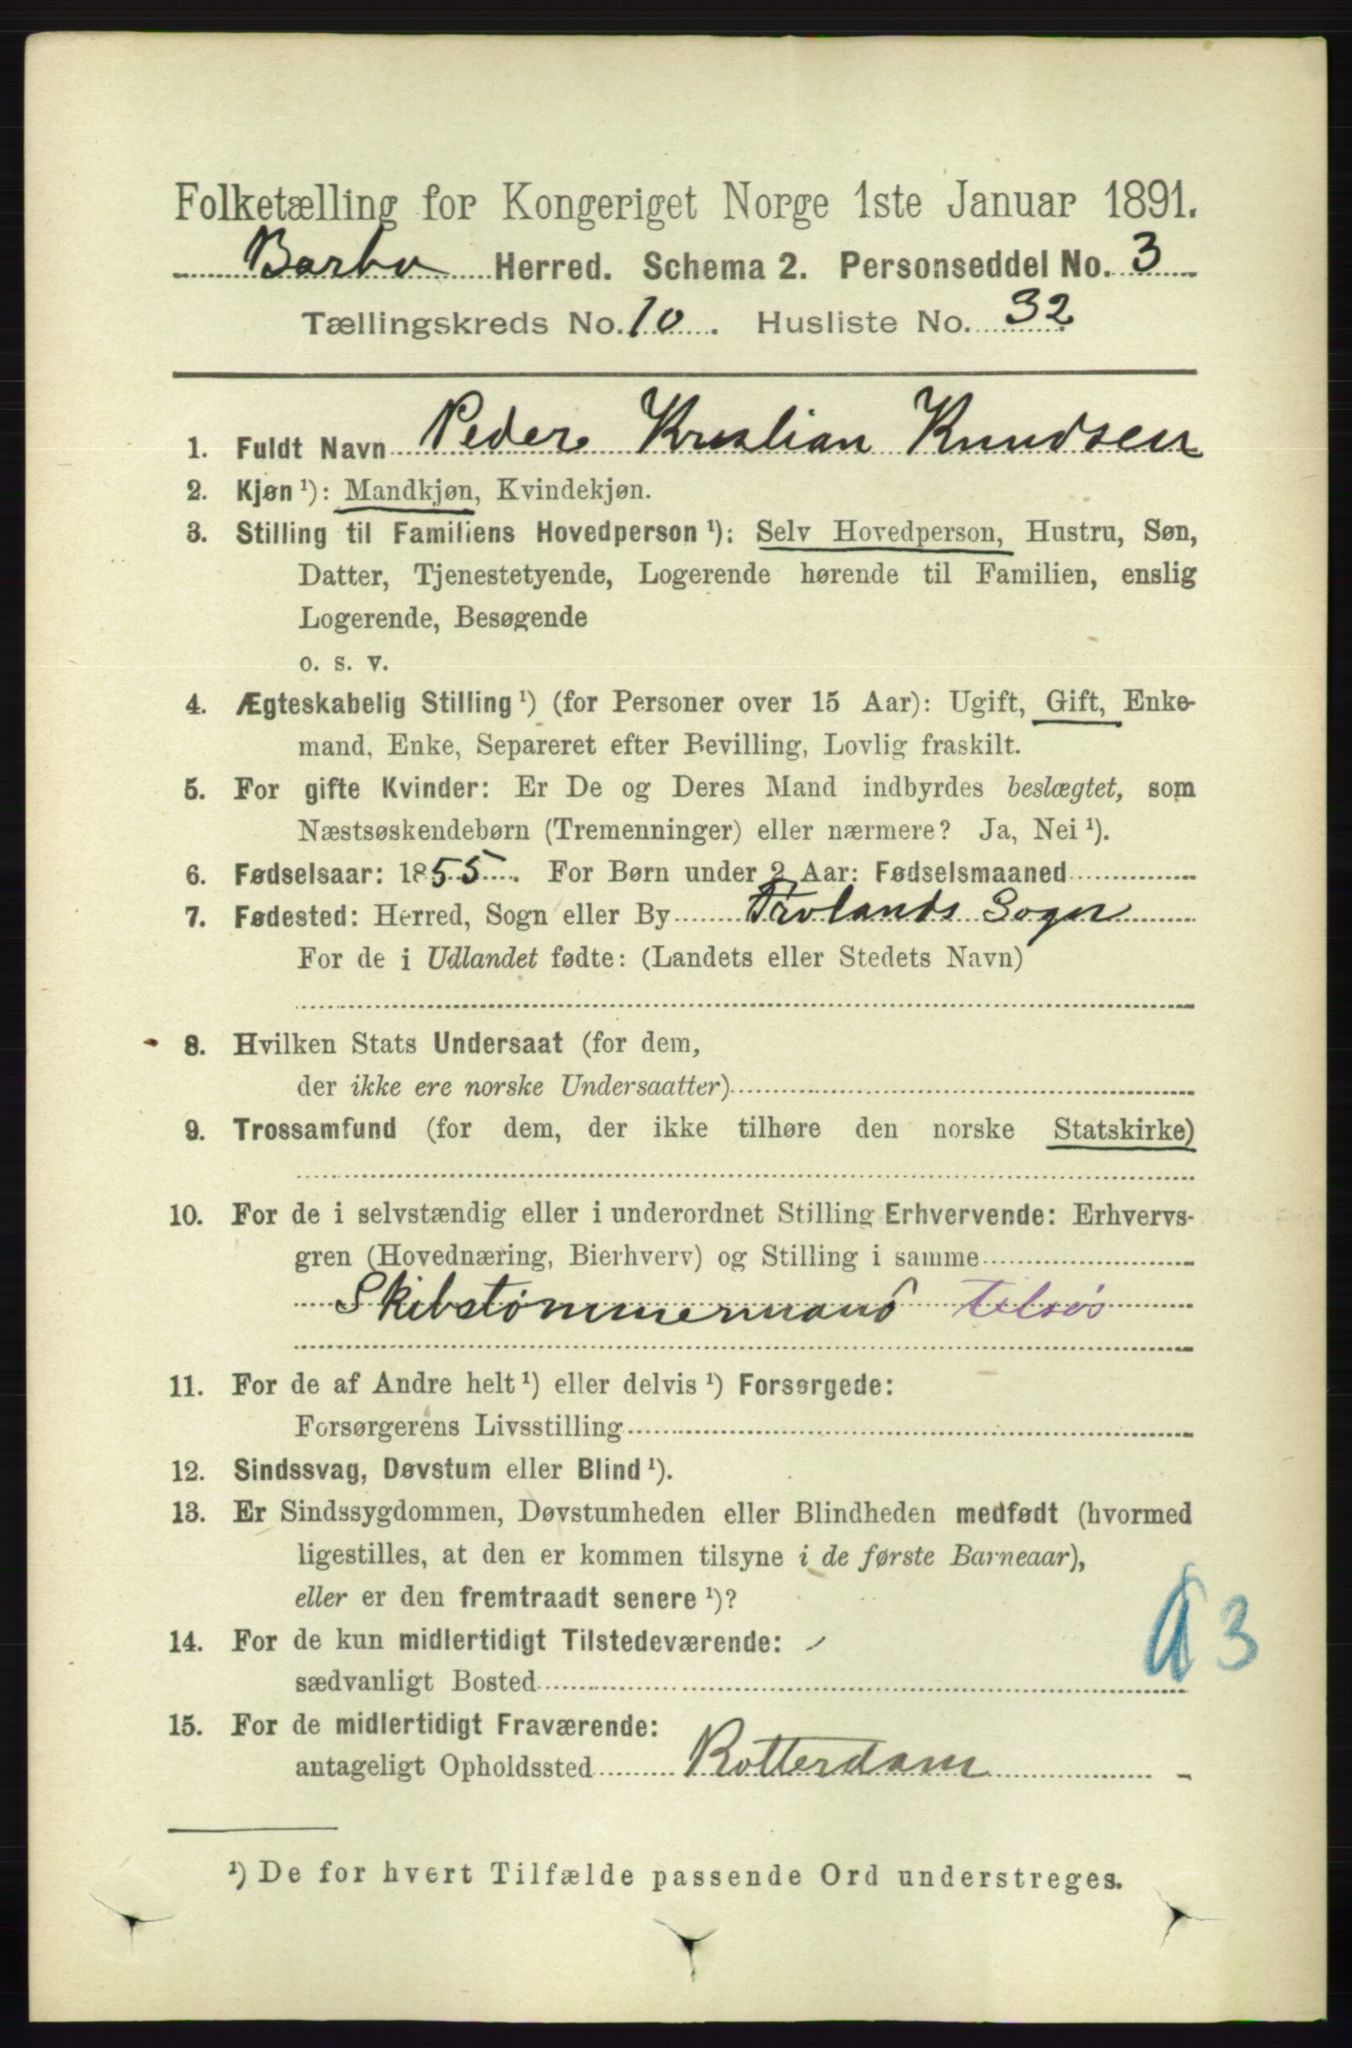 Folketælling for Kongeriget Norge 1ste Januar 1891.
Barbo Herred. Schema 2. Personseddel No. 3
Tællingskreds No. 10. Husliste No. 32.
1. Fuldt Navn Peder Kristian Knudsen
2. Kjøn ¹): Mandkjøn, Kvindekjøn.
3. Stilling til Familiens Hovedperson ¹): Selv Hovedperson, Hustru, Søn,
Datter, Tjenestetyende, Logerende hørende til Familien, enslig
Logerende, Besøgende
o. s. v.
4. Ægteskabelig Stilling ¹) (for Personer over 15 Aar): Ugift, Gift, Enke-
mand, Enke, Separeret efter Bevilling, Lovlig fraskilt.
5. For gifte Kvinder: Er De og Deres Mand indbyrdes beslægtet, som
Næstsøskendebørn (Tremenninger) eller nærmere? Ja, Nei ¹).
6. Fødselsaar: 1855. For Børn under 2 Aar: Fødselsmaaned
7. Fødested: Herred, Sogn eller By Frolands Sogn
For de i Udlandet fødte: (Landets eller Stedets Navn)
8. Hvilken Stats Undersaat (for dem,
der ikke ere norske Undersaatter)
9. Trossamfund (for dem, der ikke tilhøre den norske Statskirke)
10. For de i selvstændig eller i underordnet Stilling Erhvervende: Erhvervs-
gren (Hovednæring, Bierhverv) og Stilling i samme
Skibstømmermand tilsøs
11. For de af Andre helt ¹) eller delvis ¹) Forsørgede:
Forsørgerens Livsstilling
12. Sindssvag, Døvstum eller Blind ¹).
13. Er Sindssygdommen, Døvstumheden eller Blindheden medfødt (hvormed
ligestilles, at den er kommen tilsyne i de første Barneaar),
eller er den fremtraadt senere ¹)?
14. For de kun midlertidigt Tilstedeværende:
sædvanligt Bosted
15. For de midlertidigt Fraværende:
antageligt Opholdssted Rotterdam
¹) De for hvert Tilfælde passende Ord understreges.